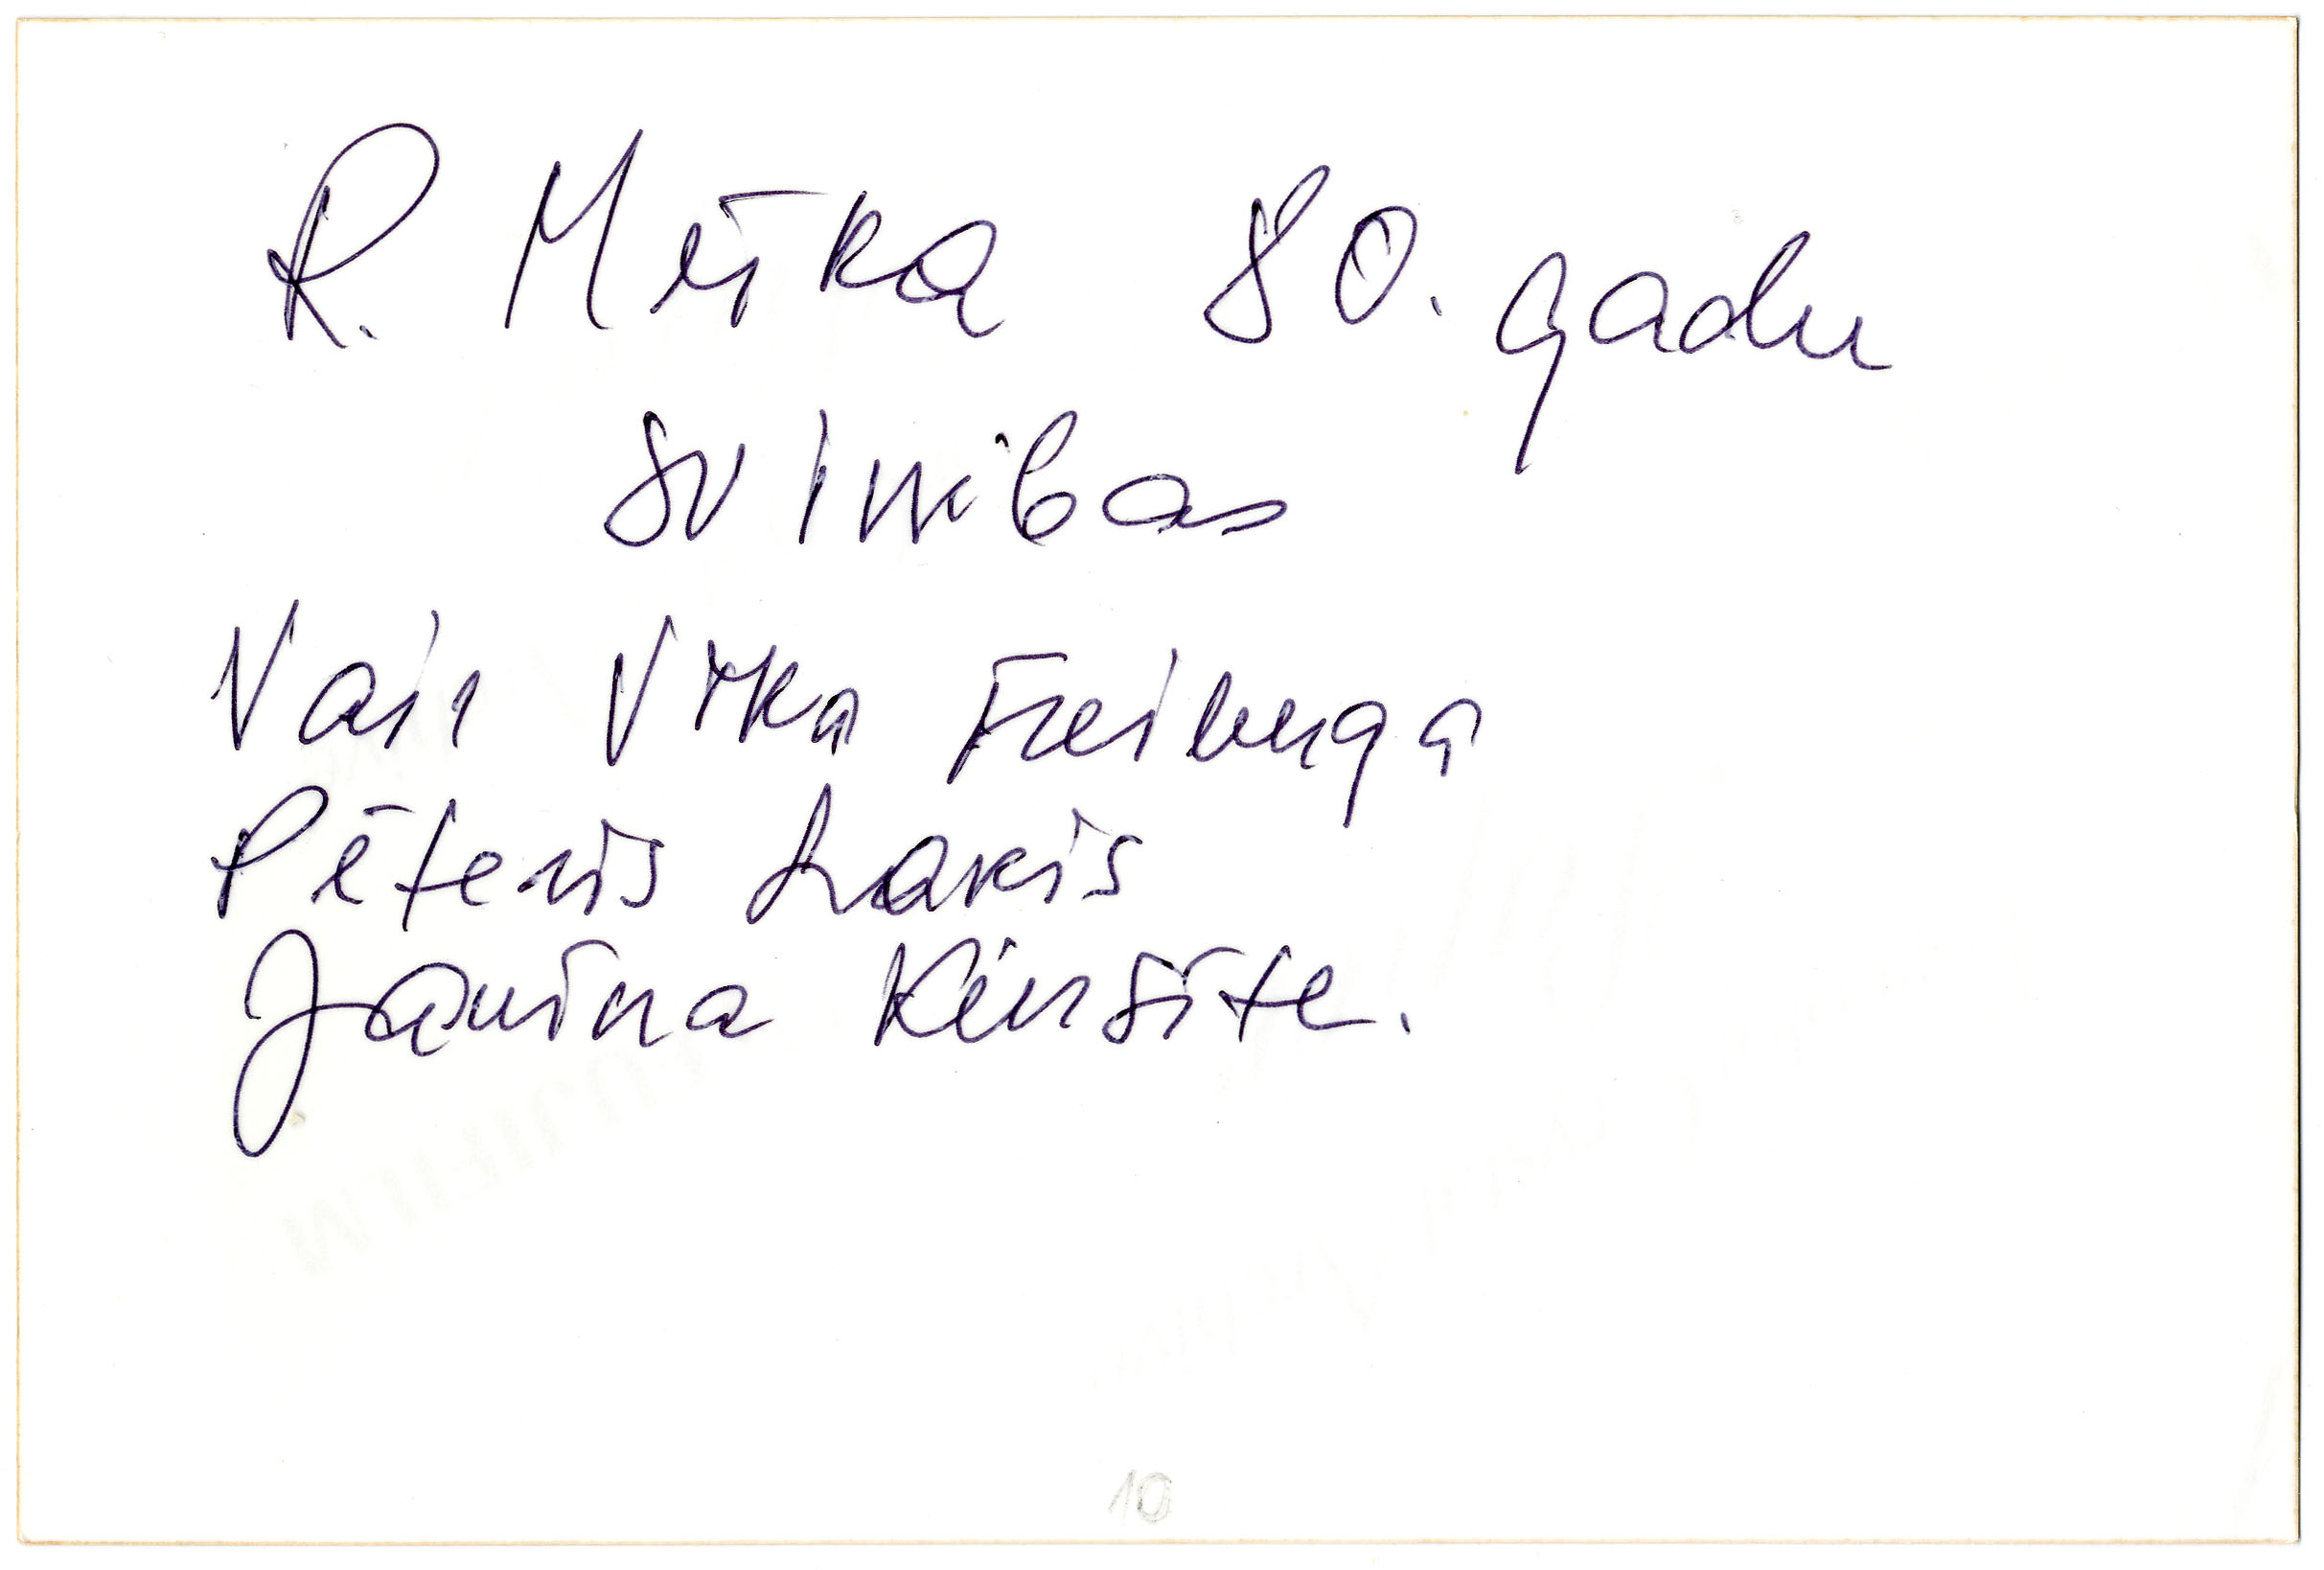 R. Mūka 80. gadu
svinības
Vair Vīķa Freiberga
Pēteris Laķis
Janīna Kursīte.
10